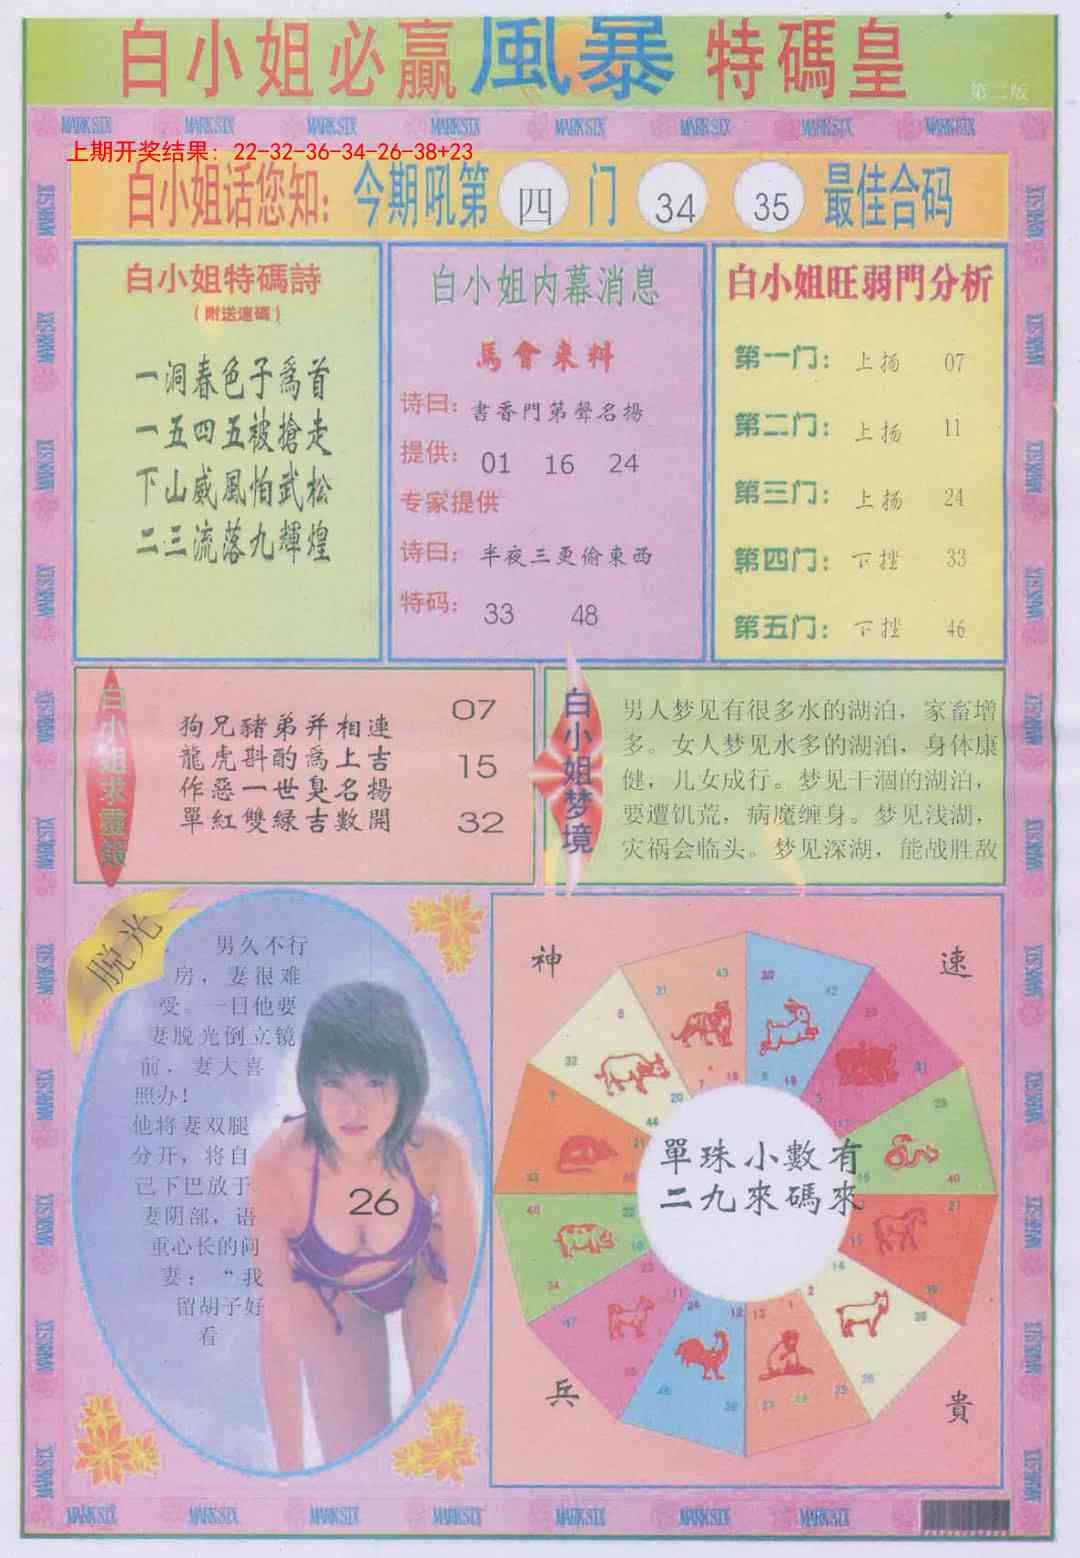 白小姐必赢風暴特碼皇
第二版
MARK SIX MARK SIX MARK SIX MARK SIX MARK SIX MARK SIX MARK SIX MARK SIX
上期开奖结果：22-32-36-34-26-38+23
白小姐话您知：今期吼第四门 34 35 最佳合码
白小姐特碼詩
（附送連碼）
一洞春色子爲首
一五四五被搶走
下山威風怕武松
二三流落九輝煌
白小姐内幕消息
馬會来料
诗曰：書香門第聲名揚
提供：01 16 24
专家提供
诗曰：半夜三更偷東西
特码：33 48
白小姐旺弱門分析
第一门：上扬 07
第二门：上扬 11
第三门：上扬 24
第四门：下挫 33
第五门：下挫 46
白小姐求靈籤
狗兄豬弟并相連
龍虎斟酌爲上吉
作惡一世臭名揚
單紅雙緑吉數開
07
15
32
白小姐梦境
男人梦见有很多水的湖泊，家畜增
多。女人梦见水多的湖泊，身体康
健，儿女成行。梦见干涸的湖泊，
要遭饥荒，病魔缠身。梦见浅湖，
灾祸会临头。梦见深湖，能战胜敌
脱光
男久不行
房，妻很难
受。一日他要
妻脱光倒立镜
前，妻大喜
照办！
他将妻双腿
分开，将自
己下巴放于
妻阴部，语
重心长的问
妻：“我
留胡子好
看
26
神
速
單珠小數有
二九來碼來
兵
貴
MARK SIX MARK SIX MARK SIX MARK SIX MARK SIX MARK SIX MARK SIX